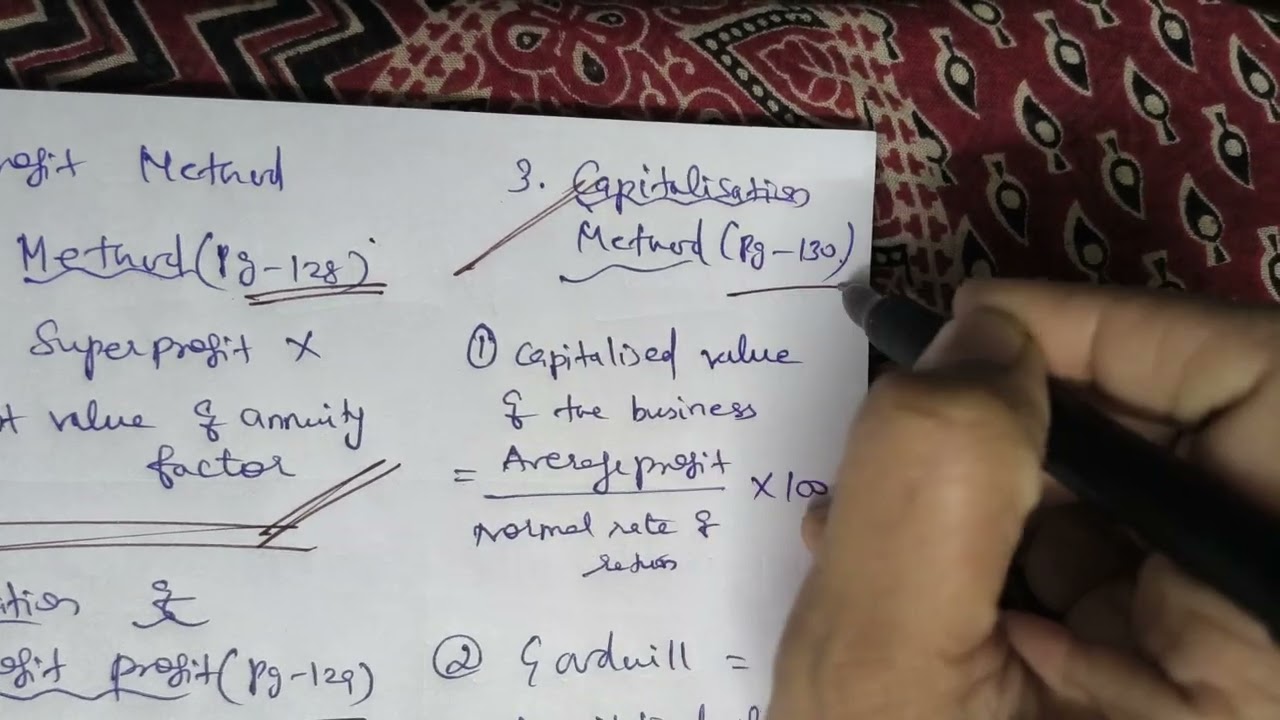 Method
Method (Pg-128)
Superprofit ×
value of annuity
factor
profit (Pg-129)
3. Capitalisation
Method (Pg-130)
① Capitalised value
of the business
= Average profit
× 100
Normal rate of
return
② Goodwill =